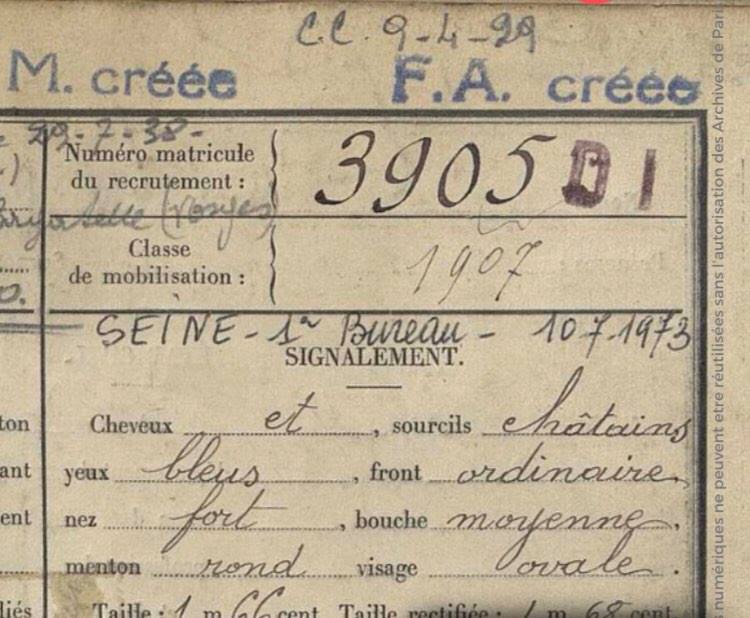 C.C. 9-4-29
M. créée F.A. créée
29-7-38-
Numéro matricule
du recrutement : 3905 D I
(Vosges)
Classe
de mobilisation : 1907
SEINE - 1er Bureau - 10.7.1973
SIGNALEMENT.
Cheveux et, sourcils châtains
yeux bleus, front ordinaire,
nez fort, bouche moyenne,
menton rond visage ovale.
Taille : 1 m. 66 cent. Taille rectifiée : 1 m. 68 cent.
ton
ant
ent
diés
numériques ne peuvent etre réutilisées sans l'autorisation des Archives de Pari